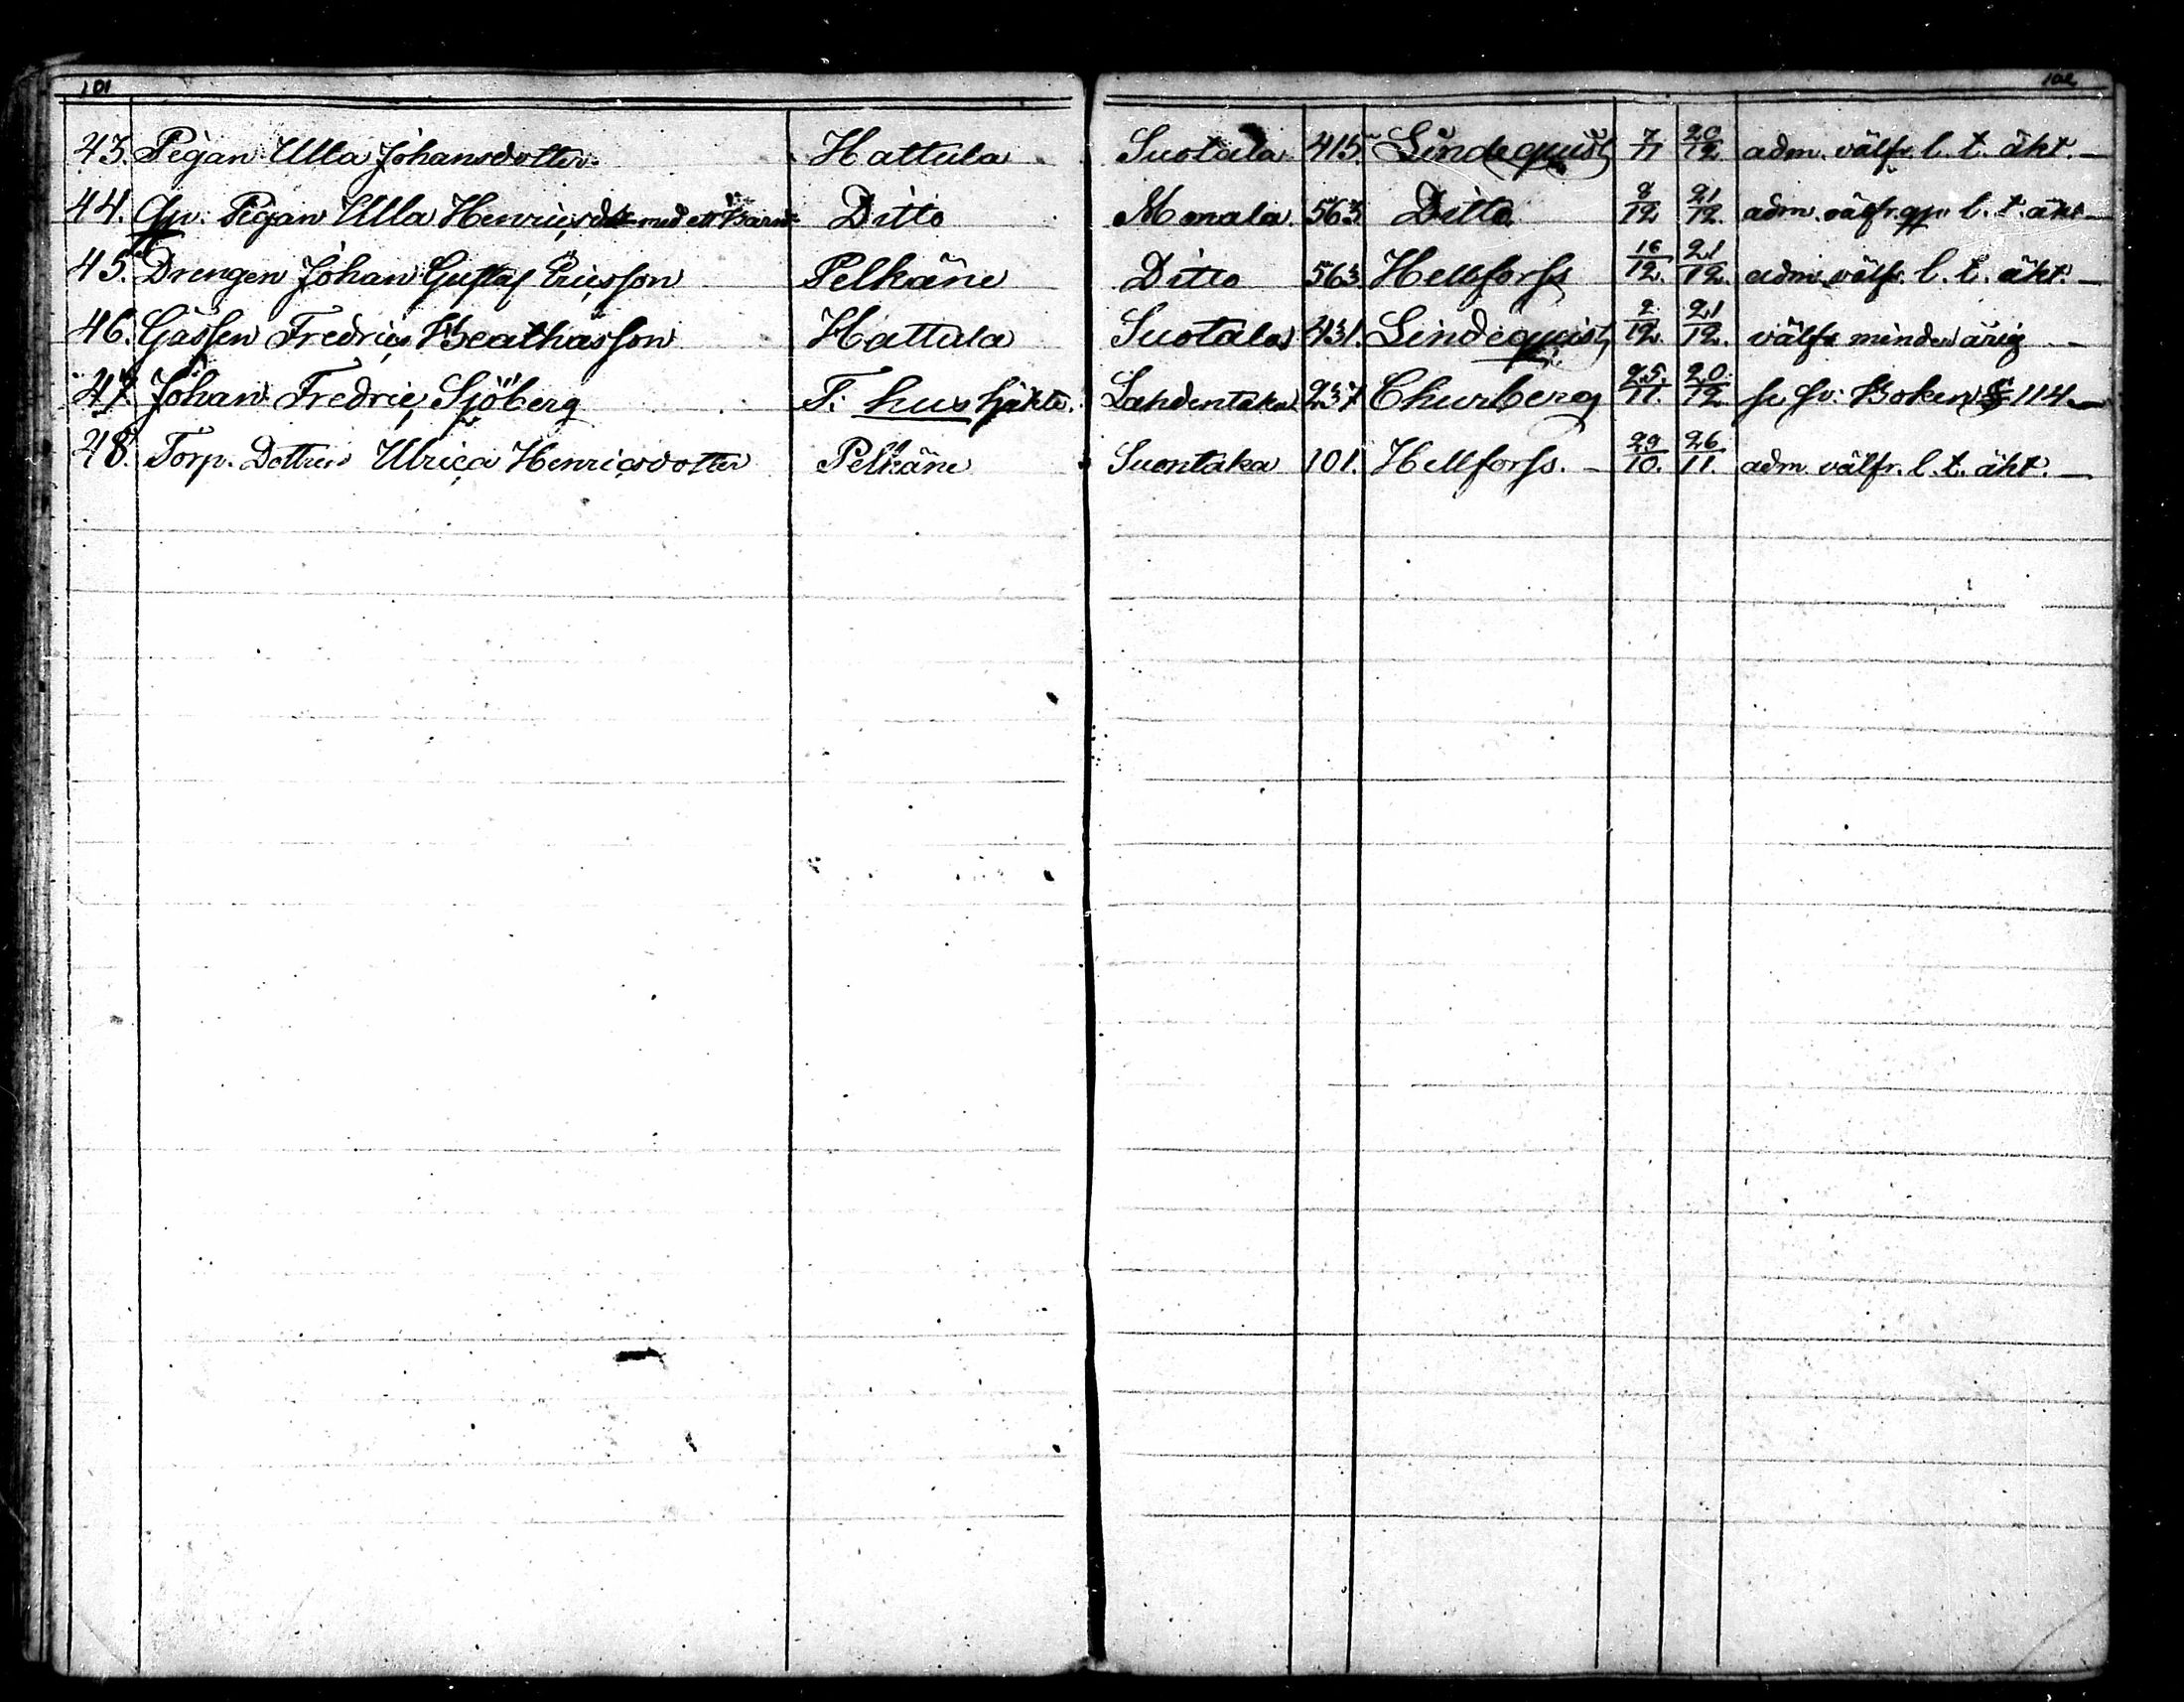 101 102
43. Pigan Ulla Johansdotter. Hattula Suotala 415. Lindequist 7/11 20/12 adm. välfr. l. t. äkt. —
44. Qv. Pigan Ulla Henricsdr med ett Barn Ditto Monala 563 Ditto 8/12 21/12. adm. välfr. l. t. äkt —
45. Drengen Johan Gustaf Ericsson Pelkäne Ditto 563 Hellforss 16/12. 21/12. adm. välfr. l. t. äkt. —
46. Gåssen Fredric Beathasson Hattula Suotala 431. Lindequist 2/12. 21/12. välfr minderårig —
47. Johan Fredric Sjöberg T: hus häkte. Lahdentaka 237 Churberg 25./11. 20./12 se Boken § 114 —
48. Torp. Dottren Ulrica Henricsdotter Pelkäne Suontaka 101. Hellforss. — 29/10. 26/11. adm välfr. l. t. äkt. —